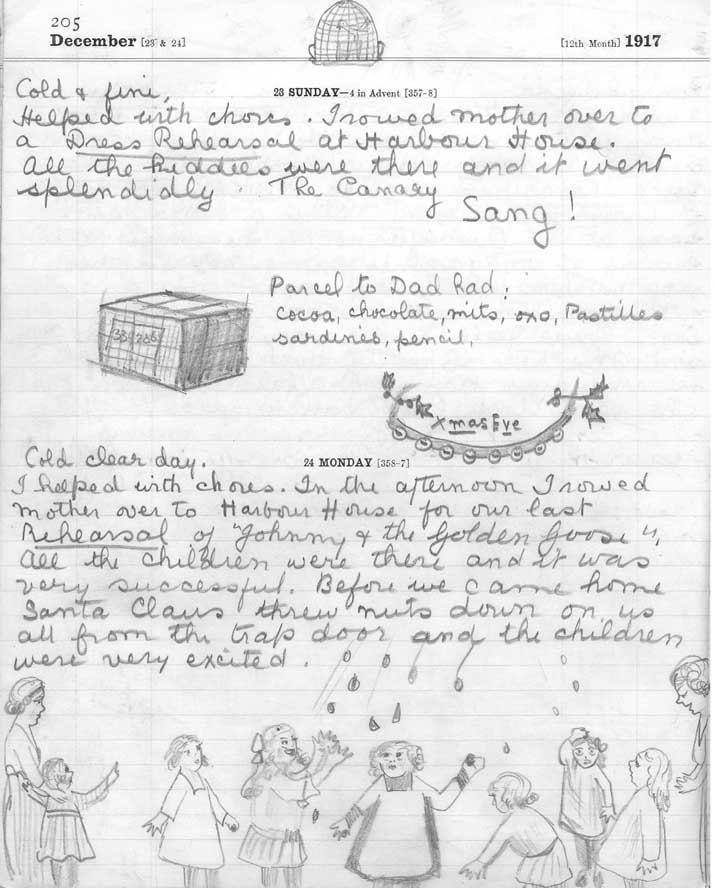 205
December [23 & 24] [12th Month] 1917
Cold & fine, 23 SUNDAY—4 in Advent [357-8]
Helped with chores. I rowed mother over to
a Dress Rehearsal at Harbour House.
All the kiddies were there and it went
splendidly. The Canary
Sang!
Parcel to Dad had:
cocoa, chocolate, mits, oxo, Pastilles
sardines, pencil,
Xmas Eve
Cold clear day. 24 MONDAY [358-7]
I helped with chores. In the afternoon I rowed
mother over to Harbour House for our last
Rehearsal of "Johnny & the Golden Goose",
All the children were there and it was
very successful. Before we came home
Santa Claus threw nuts down on us
all from the trap door and the children
were very excited.